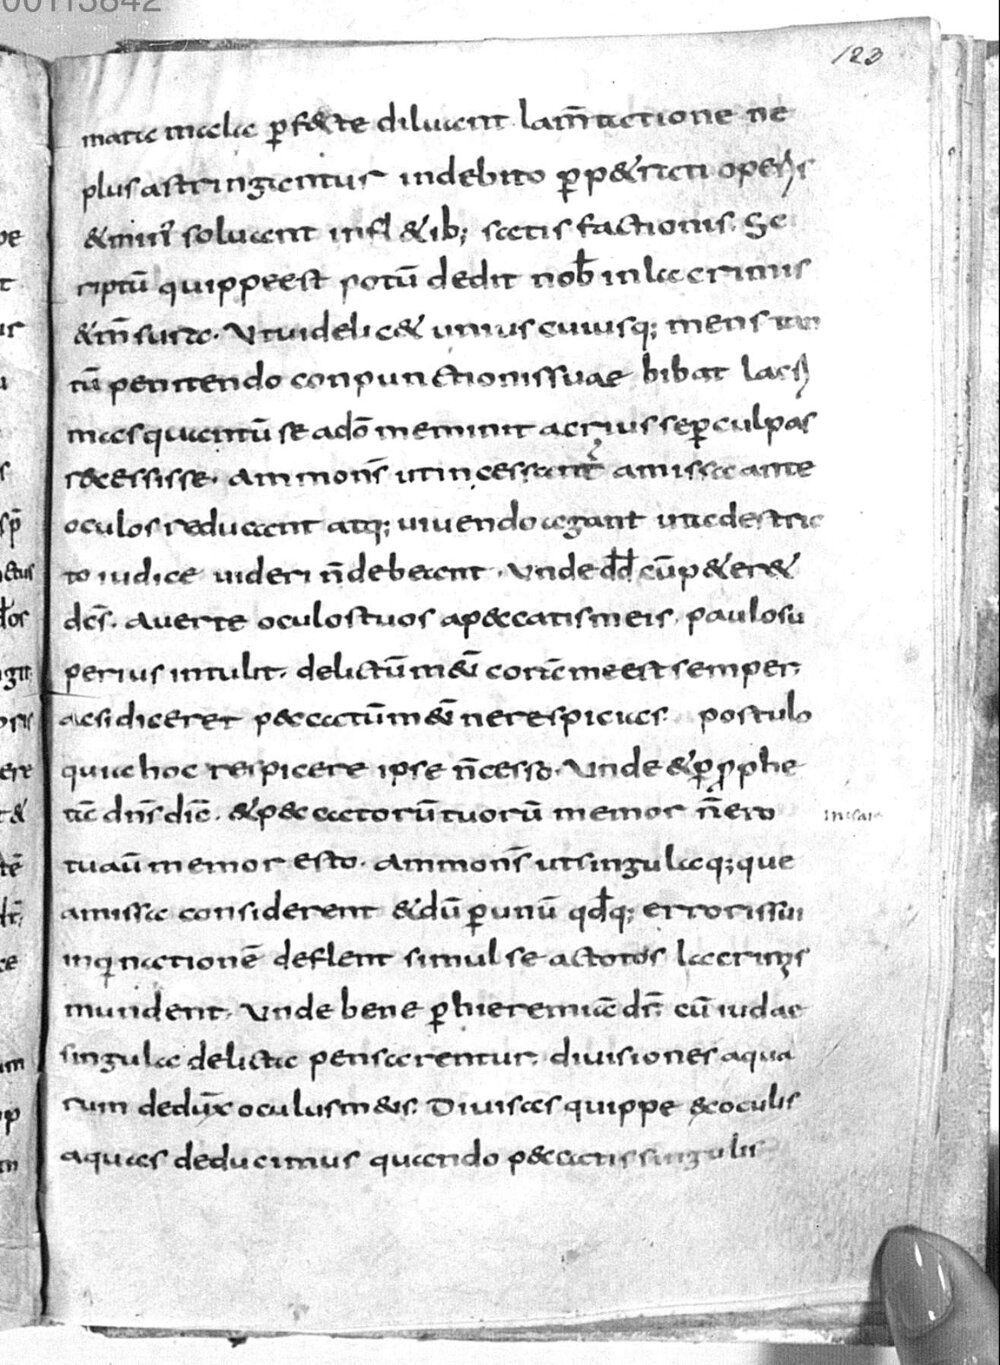 00113842
123
mata mala ꝑfecte diluant lam̄tatione ne
plus astringantur in debito ꝑpetrati operis
& min̄ soluant in fl&ib; satisfactionis. Sc
riptū quippe est potū dedit nob̄ in lacrimis
& m̄sura. Ut videlic& unius cuiusq; mens tan
tū penitendo conpunctionis suae bibat lacri
mas quantū se a dō meminit aruisse ꝑ culpas
recessisse. Ammonēd ut incessanṫ amissa ante
oculos reducant atq; uiuendo agant ut a destric
to iudice uideri n̄ debeant. Unde dd̄ cū p&er&
dc̄s. Auerte oculos tuos a peccatis meis. paulo su
perius intulit. delictū m&ū corā me est semper.
ac si diceret peccatū m&ū ne respicias postulo
quia hoc respicere ipse n̄ cesso. Unde & ꝑ ꝓphe
tā dn̄s dic̄. & peccatorū tuorū memor n̄ ero
tu aū memor esto. Ammonēd ut singula q;que
amissa considerent & dū ꝑ unū qđq; erroris sui
inqinationē deflent simul se ac totos lacrimis
mundent. Unde bene ꝑ hieremiā dr̄. cū iudae
singula delicta pensarentur. diuisiones aqua
rum dedux̄ oculus m&us. Diuisas quippe ex oculis
aquas deducimus quando peccatis singulis